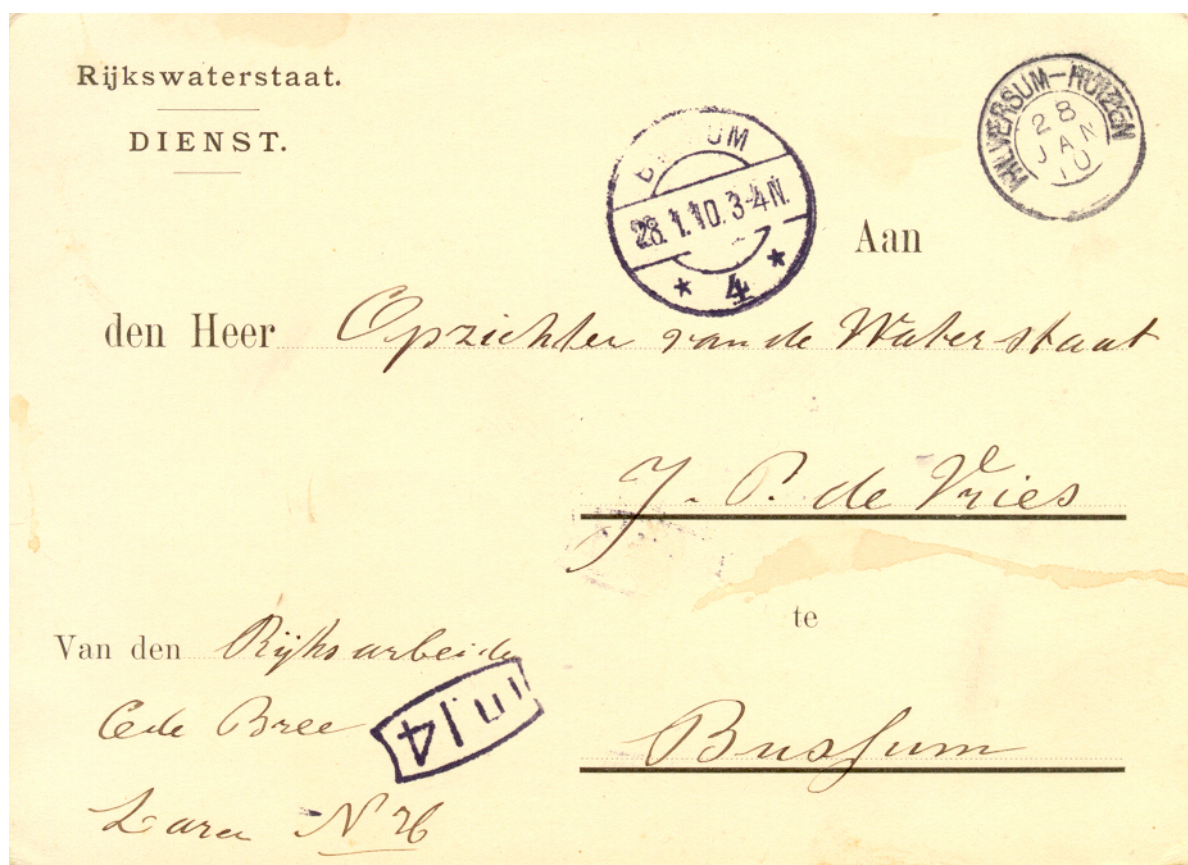 Rijkswaterstaat.
DIENST.
HILVERSUM-HUIZEN
28
JAN
10
28.1.10.3-4N.
* 4 *
Aan
den Heer Opzichter van de Waterstaat
J. P. de Vries
te
Bussum
Van den Rijksarbeider
C de Bree
Laren N 26
14